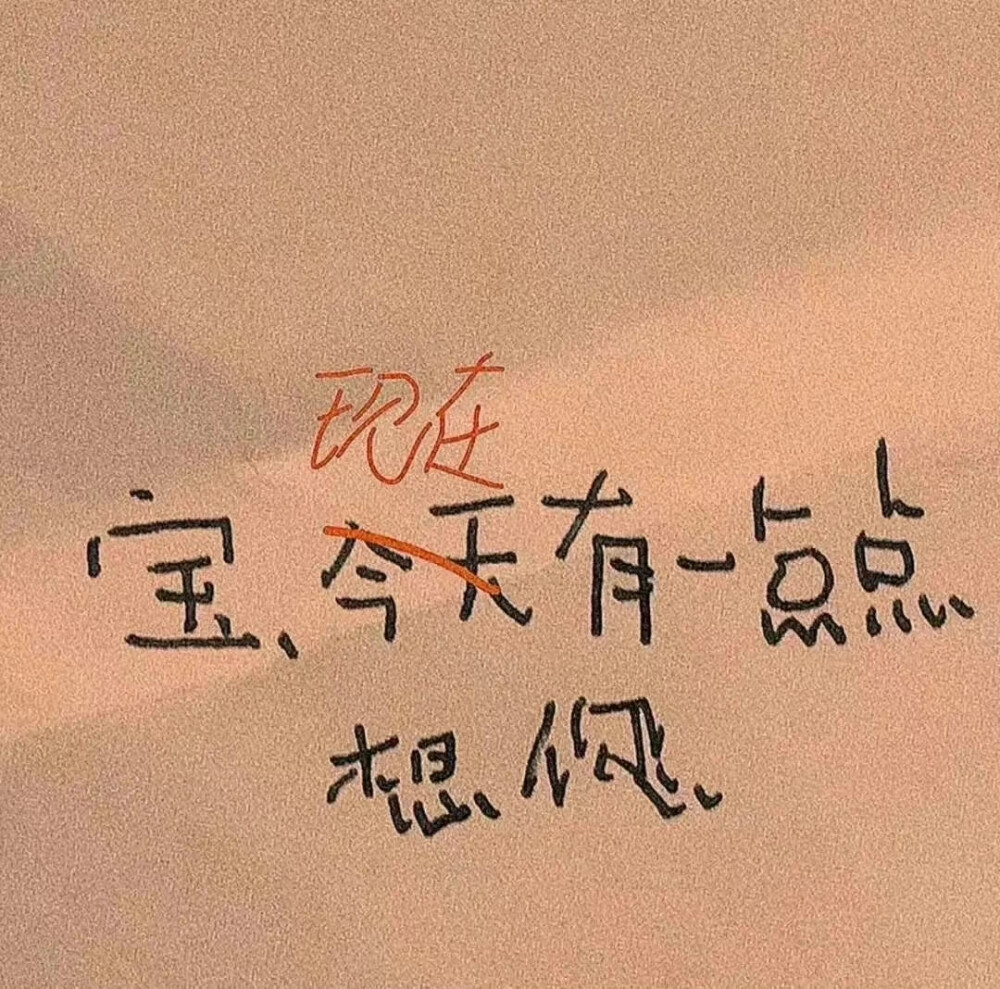 现在
宝、今天有一点点
想